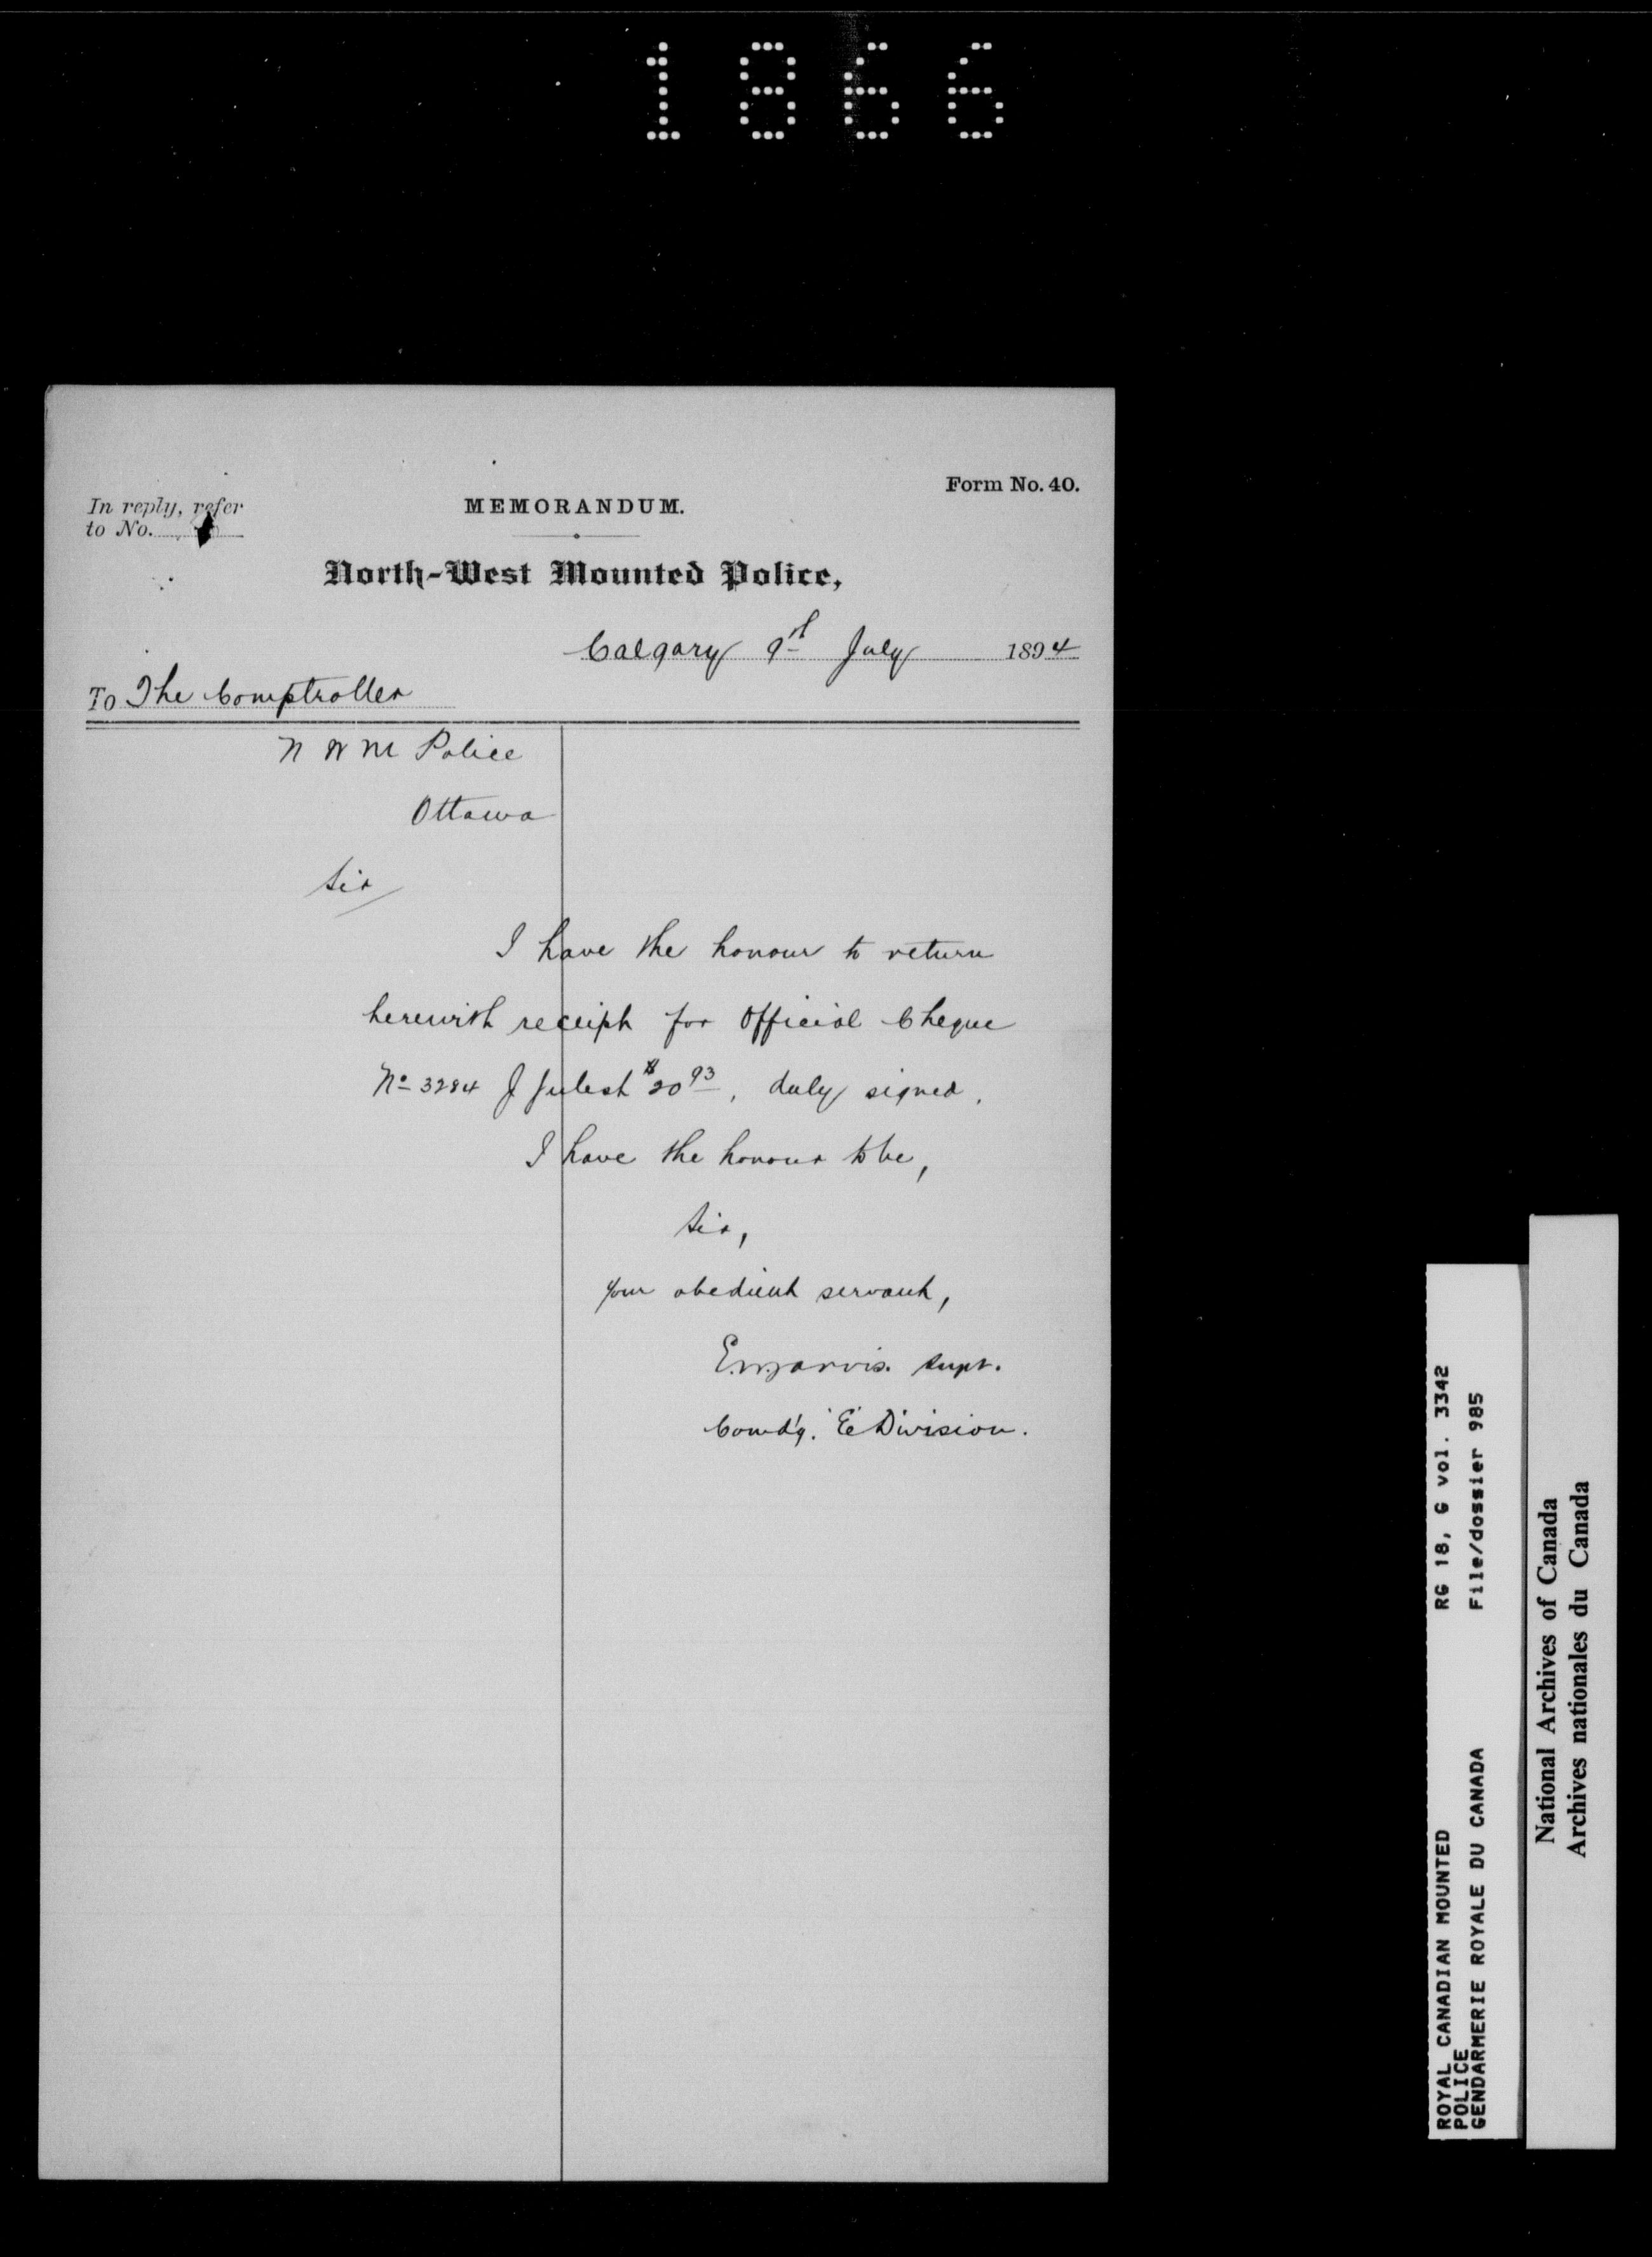 1866
Form No. 40.
In reply, refer
to No.
MEMORANDUM.
North-West Mounted Police,
Calgary 9th July 1894
To The Comptroller
N W M Police
Ottawa
Sir
I have the honour to return
herewith receipt for Official Cheque
No 3284 J $20 93, duly signed.
I have the honour to be,
Sir,
Your obedient servant,
E.W. Jarvis. Supt.
Comd'g. 'E' Division.
RG 18, G vol. 3342
File/dossier 985
ROYAL CANADIAN MOUNTED
POLICE
GENDARMERIE ROYALE DU CANADA
National Archives of Canada
Archives nationales du Canada